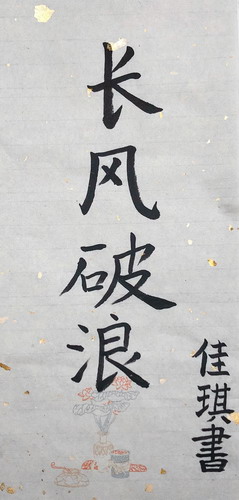 长风破浪
佳琪書